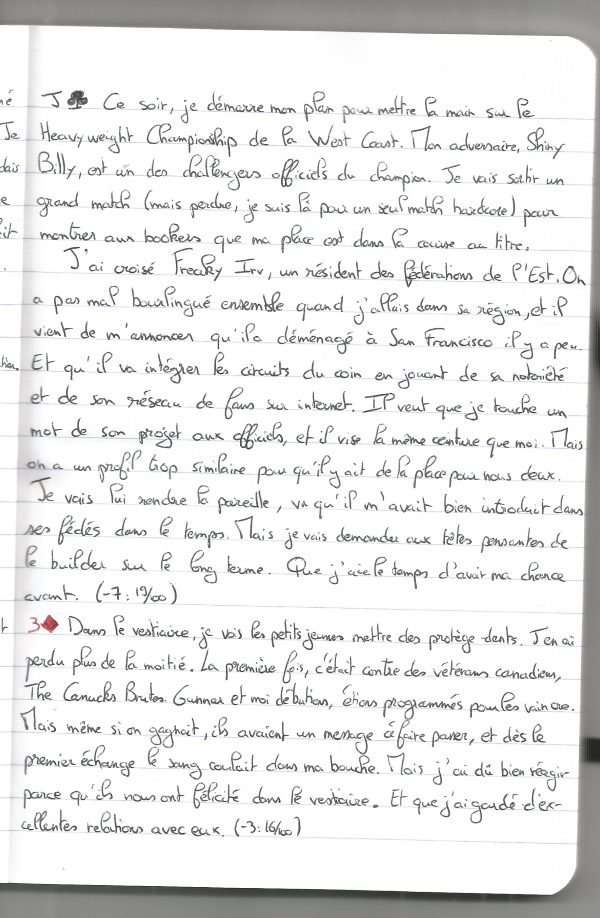 né
Je
dais
e
it
.
J♣ Ce soir, je démarre mon plan pour mettre la main sur le
Heavyweight Championship de la West Coast. Mon adversaire, Shiny
Billy, est un des challengers officiels du champion. Je vais sortir un
grand match (mais perdre, je suis là pour un seul match hardcore) pour
montrer aux bookers que ma place est dans la course au titre.
J'ai croisé Freaky Irv, un résident des fédérations de l'Est. On
a pas mal bourlingué ensemble quand j'allais dans sa région, et il
vient de m'annoncer qu'il a déménagé à San Francisco il y a peu.
Et qu'il va intégrer les circuits du coin en jouant de sa notoriété
et de son réseau de fans sur internet. Il veut que je touche un
mot de son projet aux officiels, et il vise la même ceinture que moi. Mais
on a un profil trop similaire pour qu'il y ait de la place pour nous deux.
Je vais lui rendre la pareille, vu qu'il m'avait bien introduit dans
ses fédés dans le temps. Mais je vais demander aux têtes pensantes de
le builder sur le long terme. Que j'aie le temps d'avoir ma chance
avant. (-7 : 19/00)
3♦ Dans le vestiaire, je vois les petits jeunes mettre des protège-dents. J'en ai
perdu plus de la moitié. La première fois, c'était contre des vétérans canadiens,
The Canucks Brutes. Gunnar et moi débutions, étions programmés pour les vaincre.
Mais même si on gagnait, ils avaient un message à faire passer, et dès le
premier échange le sang coulait dans ma bouche. Mais j'ai dû bien réagir
parce qu'ils nous ont félicité dans le vestiaire. Et que j'ai gardé d'ex-
cellentes relations avec eux. (-3 : 16/00)